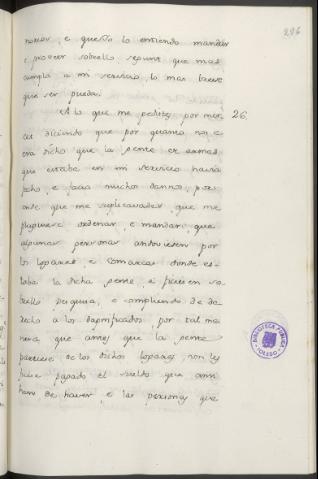 296
nonar, e que yo lo entiendo mandar
e proveer sobrello segunt que mas
cumpla a mi servicio lo mas breve
que ser pueda.
A lo que me pedistes por mer- 26.
cet diciendo que por quanto vos e-
era dicho que la gente de armas
que estaba en mi servicio havia
fecho e facia muchos dannos, por
onde que me suplicavades que me
pluguiese ordenar e mandar que
algunas personas andoviesen por
los logares e comarcas donde es-
taba la dicha gente e ficiesen so-
brello pesquisa, e compliendo de de-
recho a los dapnificados, por tal ma-
nera, que antes que la gente
partiese de los dichos logares non les
fuese pagado el sueldo que ansi
han de haver, e las personas que
BIBLIOTECA PUBLICA
TOLEDO